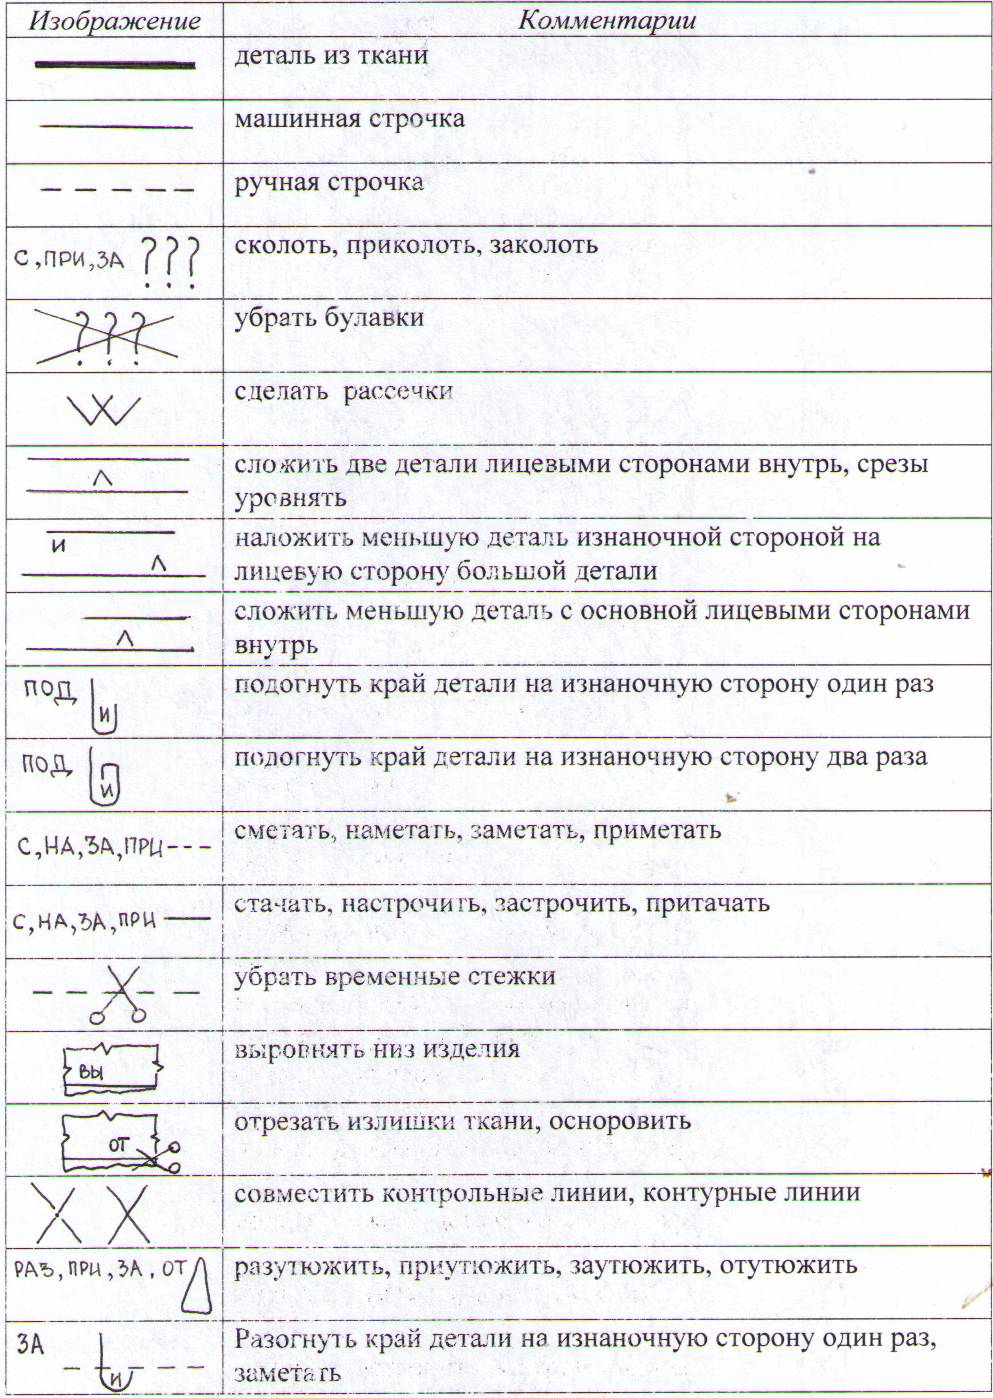 Изображение Комментарии
деталь из ткани
машинная строчка
ручная строчка
С,ПРИ,ЗА ??? сколоть, приколоть, заколоть
??? убрать булавки
сделать рассечки
сложить две детали лицевыми сторонами внутрь, срезы
Л
уровнять
наложить меньшую деталь изнаночной стороной на
И
Л лицевую сторону большой детали
сложить меньшую деталь с основной лицевыми сторонами
Л
внутрь
ПОД И подогнуть край детали на изнаночную сторону один раз
ПОД И подогнуть край детали на изнаночную сторону два раза
С,НА,ЗА,ПРИ--- сметать, наметать, заметать, приметать
С,НА,ЗА,ПРИ— стачать, настрочить, застрочить, притачать
убрать временные стежки
ВЫ выровнять низ изделия
ОТ отрезать излишки ткани, осноровить
совместить контрольные линии, контурные линии
РАЗ, ПРИ, ЗА, ОТ разутюжить, приутюжить, заутюжить, отутюжить
ЗА Разогнуть край детали на изнаночную сторону один раз,
И заметать